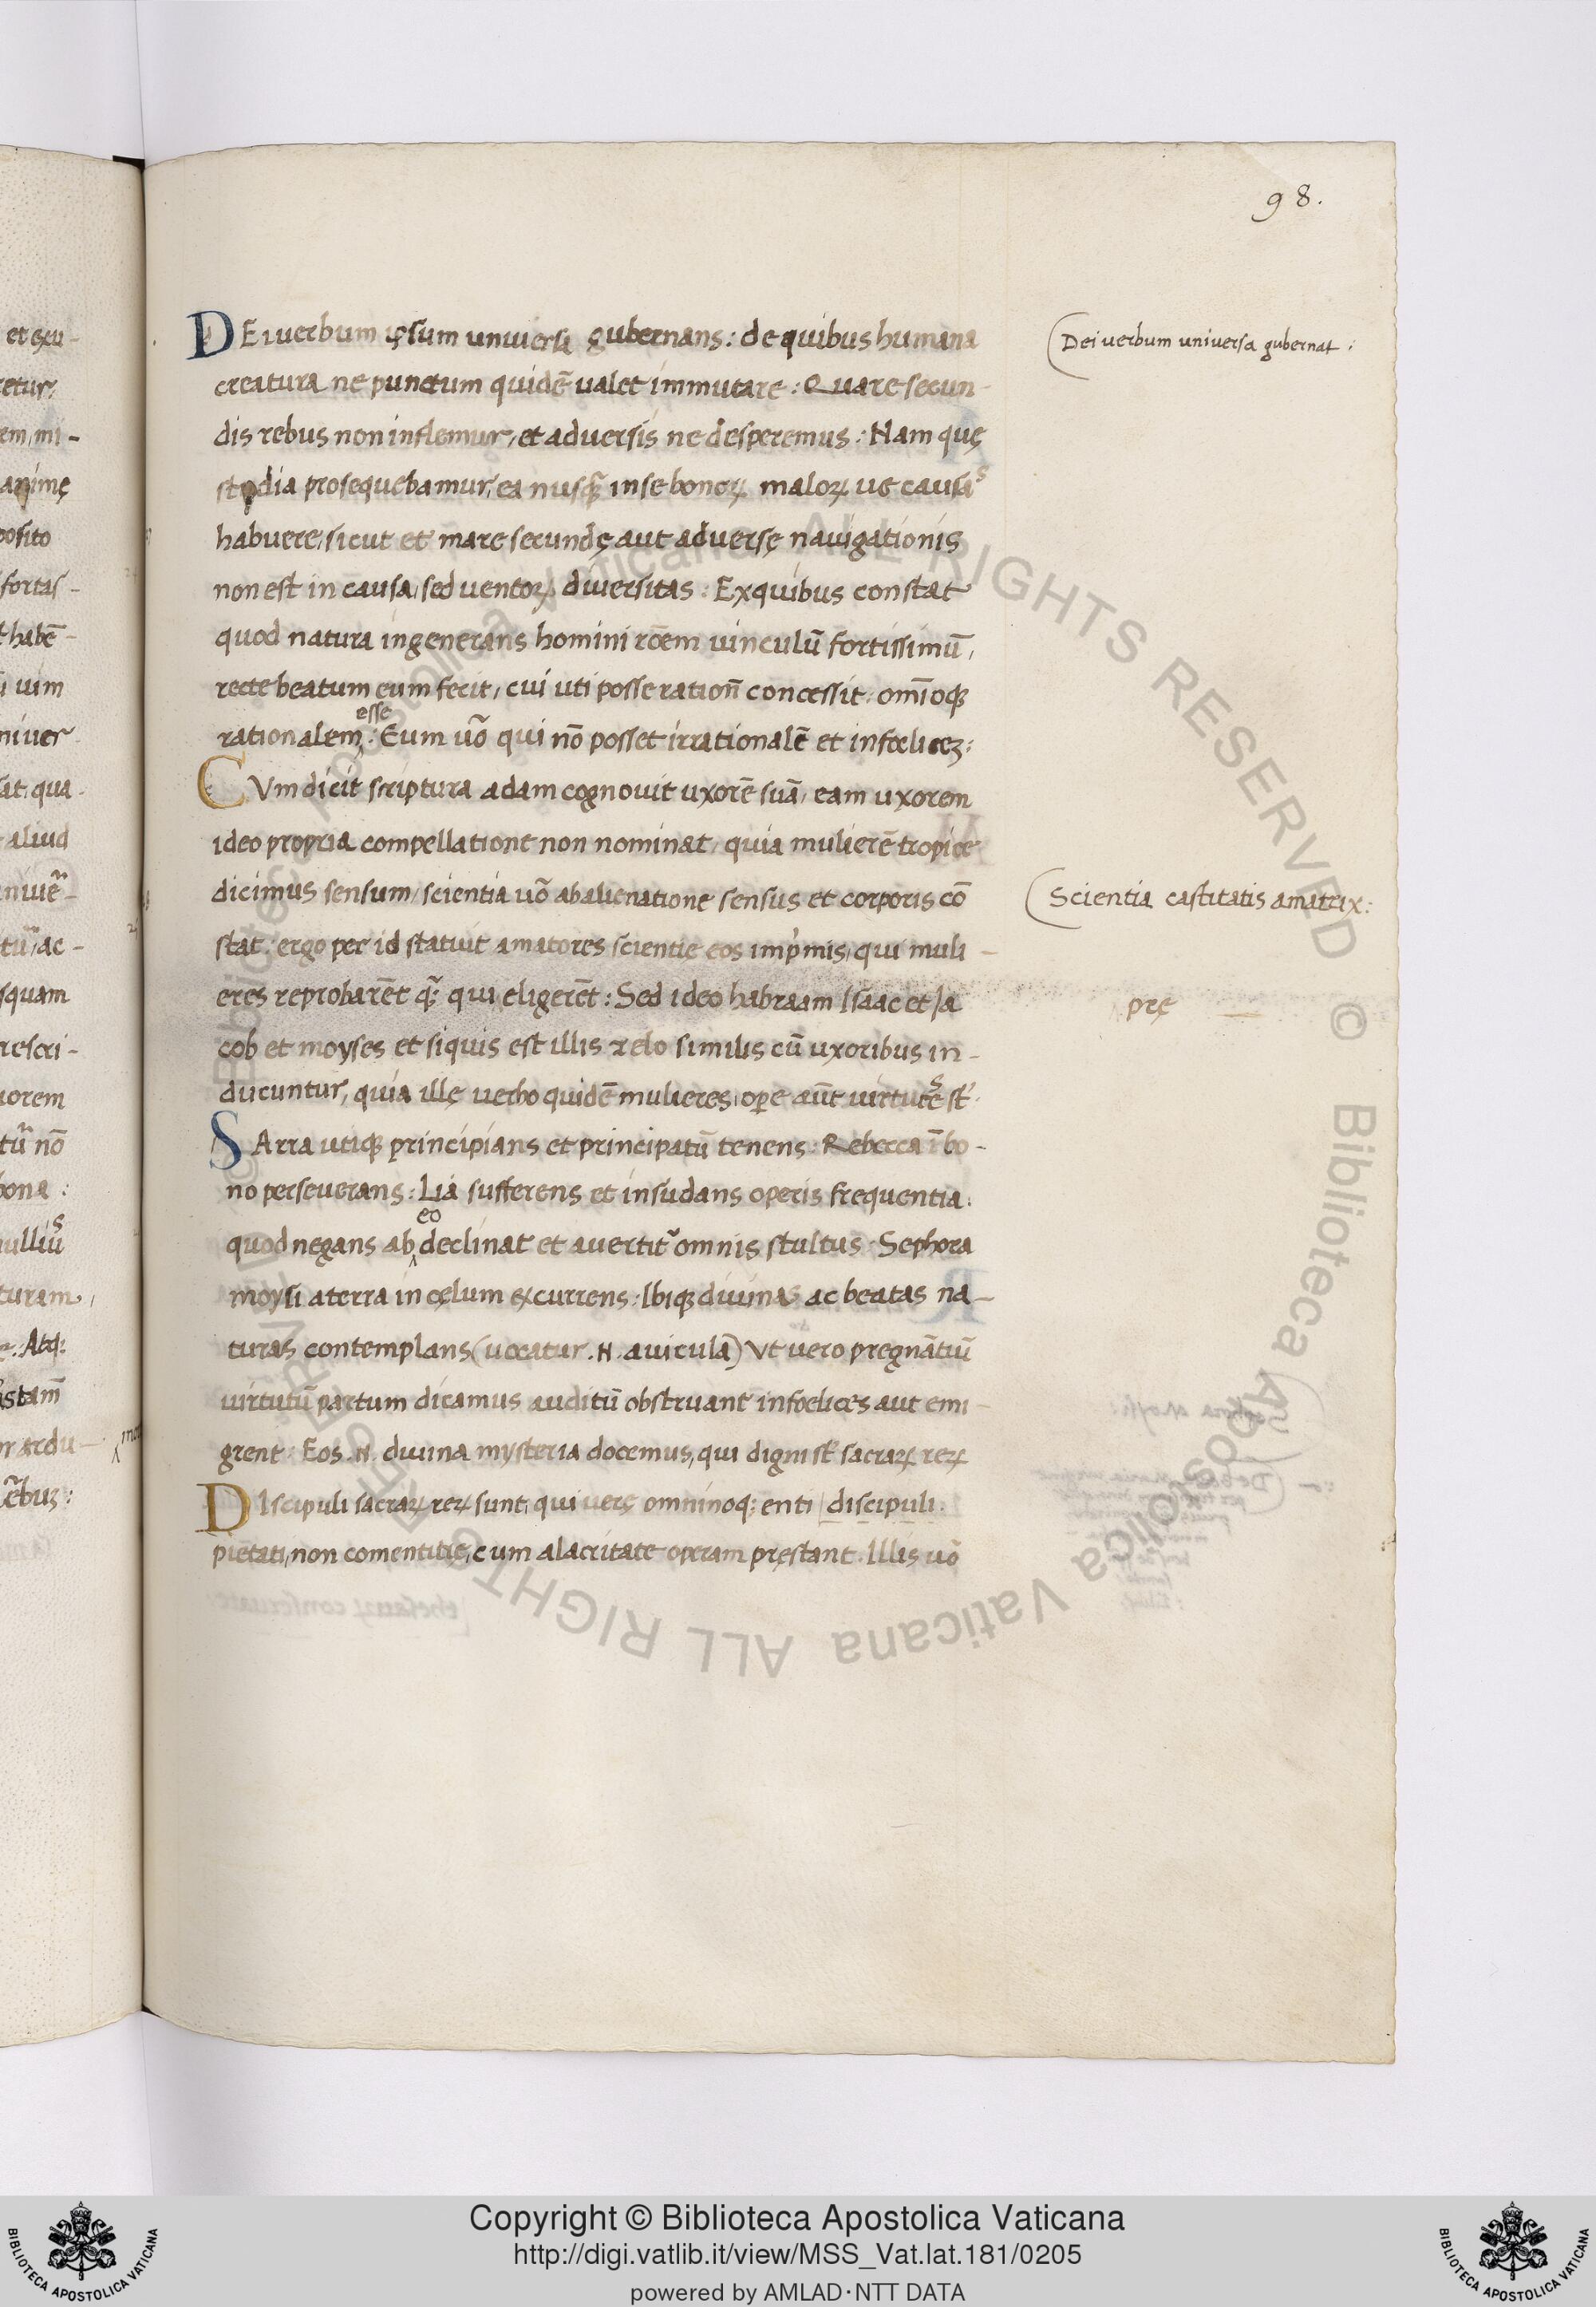 98.
DEi verbum ipsum universa gubernans: de quibus humana
creatura ne punctum quidē valet immutare: Quare secun-
dis rebus non inflemur, et adversis ne desperemus: Nam quę
studia prosequebamur, ea nusq̃ in se bonoꝝ maloꝝ ve causas
habuere, sicut et mare secundę aut adversę navigationis
non est in causa, sed ventoꝝ diversitas: Ex quibus constat
quod natura ingenerans homini rōem vinculū fortissimū,
recte beatum eum fecit, cui uti posse rationē concessit: omīoqꝫ
rationalem esse: Eum vō qui nō posset irrationalē et infœlicēꝫ:
CVm dicit scriptura adam cognovit uxorē suā, eam uxorem
ideo propria compellatione non nominat, quia mulierē tropice
dicimus sensum, scientia vō abalienatione sensus et corporis cō
stat: ergo per id statuit amatores scientie eos imp̓mis, qui muli-
eres reprobarēt q̃ꝫ qui eligerēt: Sed ideo habraam Isaac et Ja
cob et moyses et siquis est illis zelo similis cū uxoribus in-
ducuntur, quia illę verbo quidē mulieres, oꝑe aūt virtutēs st̄.
SArra utiqꝫ principians et principatū tenens: Rebecca ī bo-
no perseverans: Lia sufferens et insudans operis frequentia:
quod negans ab eo declinat et avertit̃ omnis stultus: Sephora
moysi a terra in cęlum excurrens: Ibiqꝫ divinas ac beatas na-
turas contemplans (vocatur .N. avicula) Vt vero pregnātiū
virtutū partum dicamus auditū obstruant infoelices aut emi-
grent: Eos .N. divina mysteria docemus, qui digni st̄ sacraꝝ reꝝ
DIscipuli sacraꝝ reꝝ sunt, qui verę omninoqꝫ enti discipuli
pietati, non comentitię, cum alacritate operam pręstant. Illis vō
(Dei verbum universa gubernat:
(Scientia castitatis amatrix:
prę
Copyright © Biblioteca Apostolica Vaticana
http://digi.vatlib.it/view/MSS_Vat.lat.181/0205
powered by AMLAD·NTT DATA